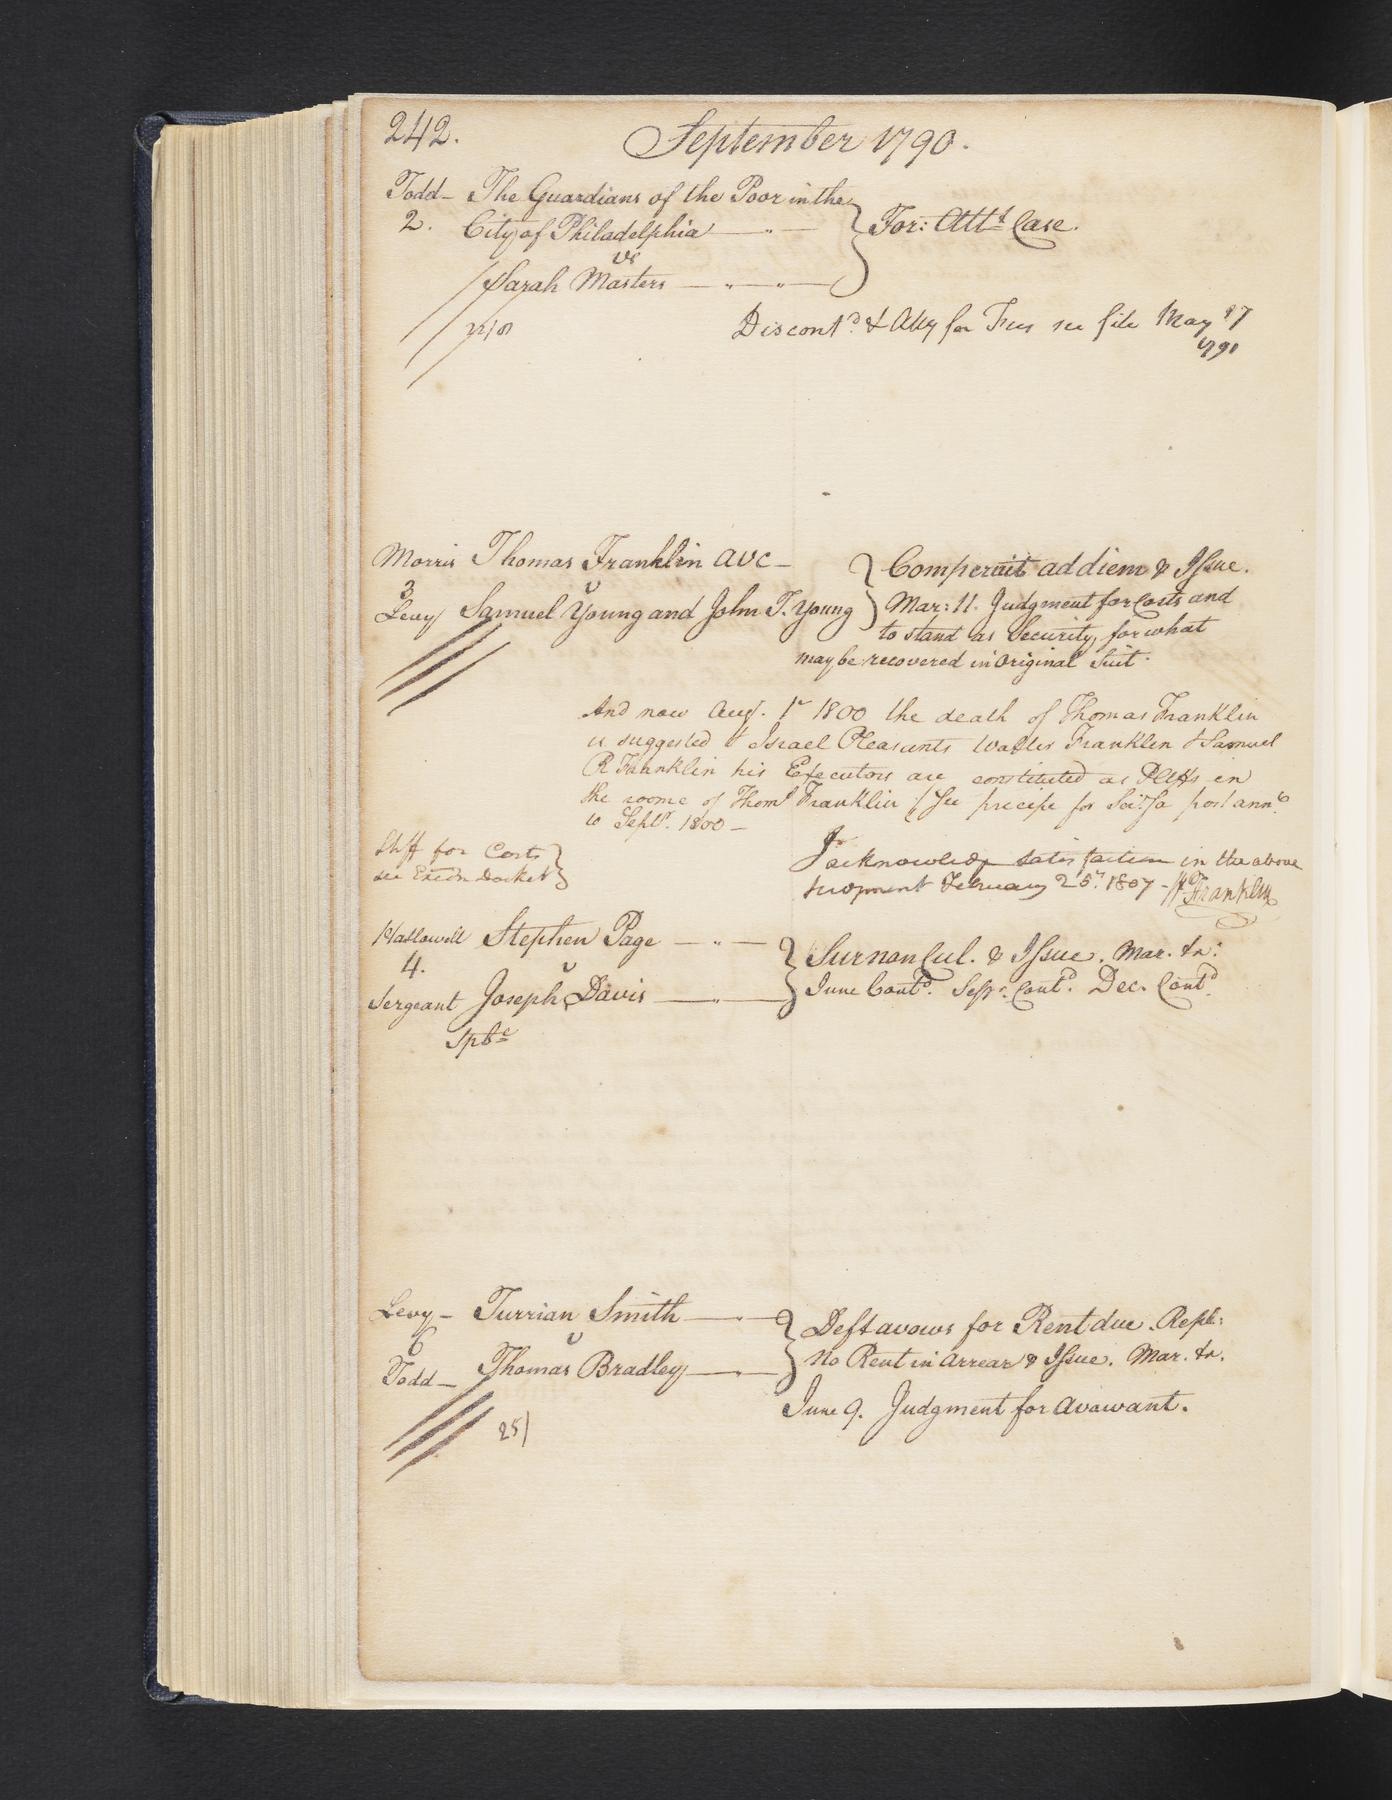 242.
September 1790.
Todd— The Guardians of the Poor in the
2. City of Philadelphia —"— } For: Attt Case.
vs
Sarah Masters —"—"—
Discontd. & Atty for Fees see file May 17
1791
Morris Thomas Franklin avc — } Comperuit ad diem & Issue.
3 v
Levy Samuel Young and John T. Young Mar: 11. Judgment for Costs and
to stand as Security, for what
may be recovered in Original Suit.
And now Augt. 1st 1800 the death of Thomas Franklin
is suggested & Israel Pleasants Walter Franklin & Samuel
R Franklin his Executors are constituted as Pltffs in
the roome of Thoms Franklin (See precipe for Sci: fa post annd
to Septr. 1800 —
Plff for Costs }
see Exeon Docket }
I acknowledge satisfaction in the above
Judgment February 25th. 1807 - W Franklin
Hallowell Stephen Page —"— } Sur non Cul. & Issue. Mar. tr:
4. v
Sergeant Joseph Davis —"— June Contd. Sepr. Contd. Dec. Contd.
Spbe
Levy— Turrian Smith —"— } Deft avows for Rent due. Repl:
6 v
Todd— Thomas Bradley —"— No Rent in arrear & Issue. Mar. tr.
June 9. Judgment for avowant.
25/